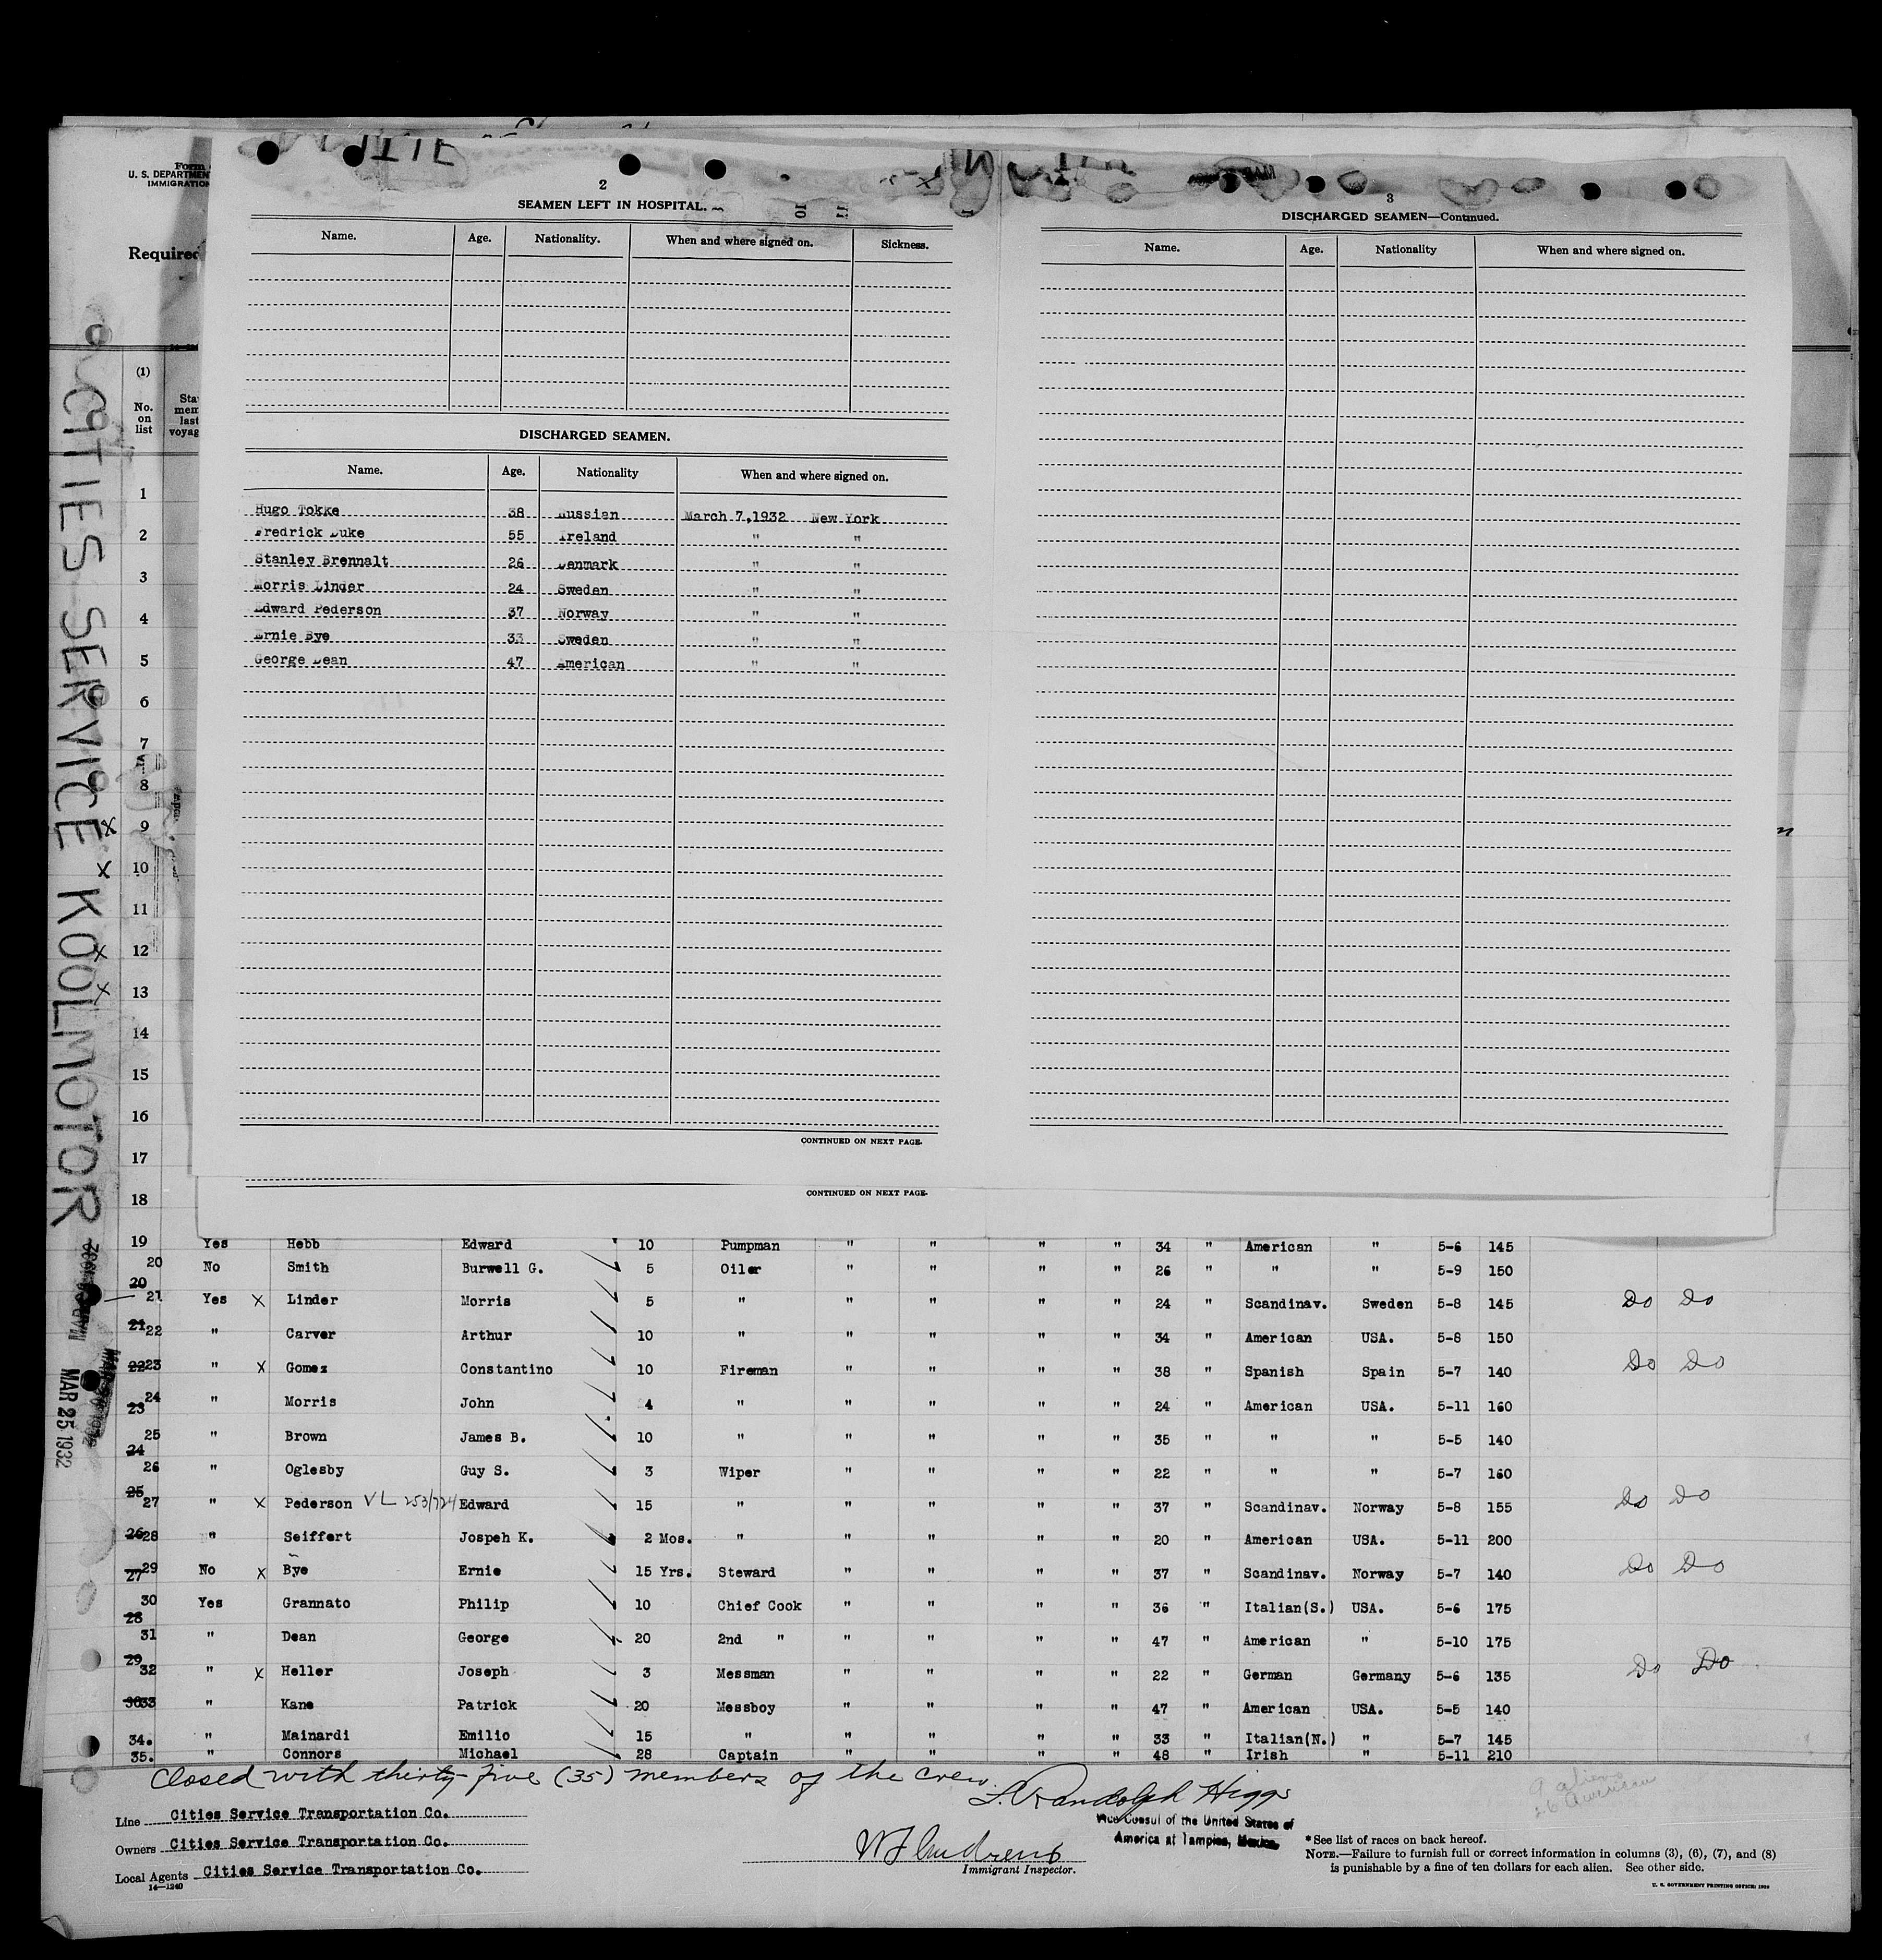 Form
U. S. DEPARTMENT
IMMIGRATION
Required
(1)
No. on list
CITIES SERVICE KOOLMOTOR
MAR 25 1932
2
SEAMEN LEFT IN HOSPITAL.
Name. Age. Nationality. When and where signed on. Sickness.
DISCHARGED SEAMEN.
Name. Age. Nationality When and where signed on.
Hugo Tokke 38 Russian March 7,1932 New York
Fredrick Duke 55 Ireland " "
Stanley Brennalt 26 Denmark " "
Morris Linder 24 Sweden " "
Edward Pederson 37 Norway " "
Ernie Bye 33 Sweden " "
George Dean 47 American " "
CONTINUED ON NEXT PAGE.
CONTINUED ON NEXT PAGE.
3
DISCHARGED SEAMEN—Continued.
Name. Age. Nationality When and where signed on.
1
2
3
4
5
6
7
8
x 9
x 10
11
x 12
x 13
14
15
16
17
18
19 Yes Hebb Edward 10 Pumpman " " " " 34 " American " 5-6 145
20 No Smith Burwell G. 5 Oiler " " " " 26 " " " 5-9 150
20 21 Yes x Linder Morris 5 " " " " " 24 " Scandinav. Sweden 5-8 145 Do Do
21 22 " Carver Arthur 10 " " " " " 34 " American USA. 5-8 150
22 23 " x Gomez Constantino 10 Fireman " " " " 38 " Spanish Spain 5-7 140 Do Do
23 24 " Morris John 4 " " " " " 24 " American USA. 5-11 160
24 25 " Brown James B. 10 " " " " " 35 " " " 5-5 140
26 " Oglesby Guy S. 3 Wiper " " " " 22 " " " 5-7 160
25 27 " x Pederson VL 253/724 Edward 15 " " " " " 37 " Scandinav. Norway 5-8 155 Do Do
26 28 " Seiffert Jospeh K. 2 Mos. " " " " " 20 " American USA. 5-11 200
27 29 No x Bye Ernie 15 Yrs. Steward " " " " 37 " Scandinav. Norway 5-7 140 Do Do
28 30 Yes Grannato Philip 10 Chief Cook " " " " 36 " Italian(S.) USA. 5-6 175
31 " Dean George 20 2nd " " " " " 47 " American " 5-10 175
29 32 " x Heller Joseph 3 Messman " " " " 22 " German Germany 5-6 135 Do Do
30 33 " Kane Patrick 20 Messboy " " " " 47 " American USA. 5-5 140
34. " Mainardi Emilio 15 " " " " " 33 " Italian(N.) " 5-7 145
35. " Connors Michael 28 Captain " " " " 48 " Irish " 5-11 210
Closed with thirty-five (35) members of the crew.
L. Randolph Higgs
Vice Consul of the United States of
America at Tampico, Mexico.
9 aliens
26 American
Line Cities Service Transportation Co.
Owners Cities Service Transportation Co.
Local Agents Cities Service Transportation Co.
14—1240
Immigrant Inspector.
* See list of races on back hereof.
NOTE.—Failure to furnish full or correct information in columns (3), (6), (7), and (8)
is punishable by a fine of ten dollars for each alien. See other side.
U. S. GOVERNMENT PRINTING OFFICE: 1929